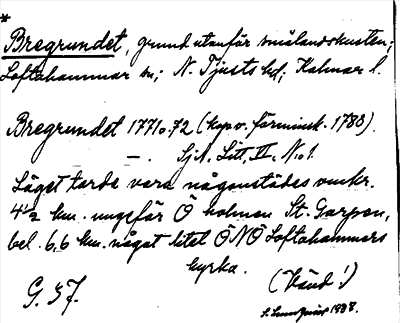 *
Bregrundet, grund utanför smålandskusten;
Loftahammar sn; N. Tjusts hd; Kalmar l.
Bregrundet 1771 o. 72 (kop. v. förminsk. 1788).
— . SjA. Litt. II. No 1.
Läget torde vara någonstädes omkr.
4½ km. ungefär Ö holmen St. Garpen,
bel. 6,6 km. något litet ÖNÖ Loftahammars
kyrka.
(Vänd!)
G. 37.
1938.